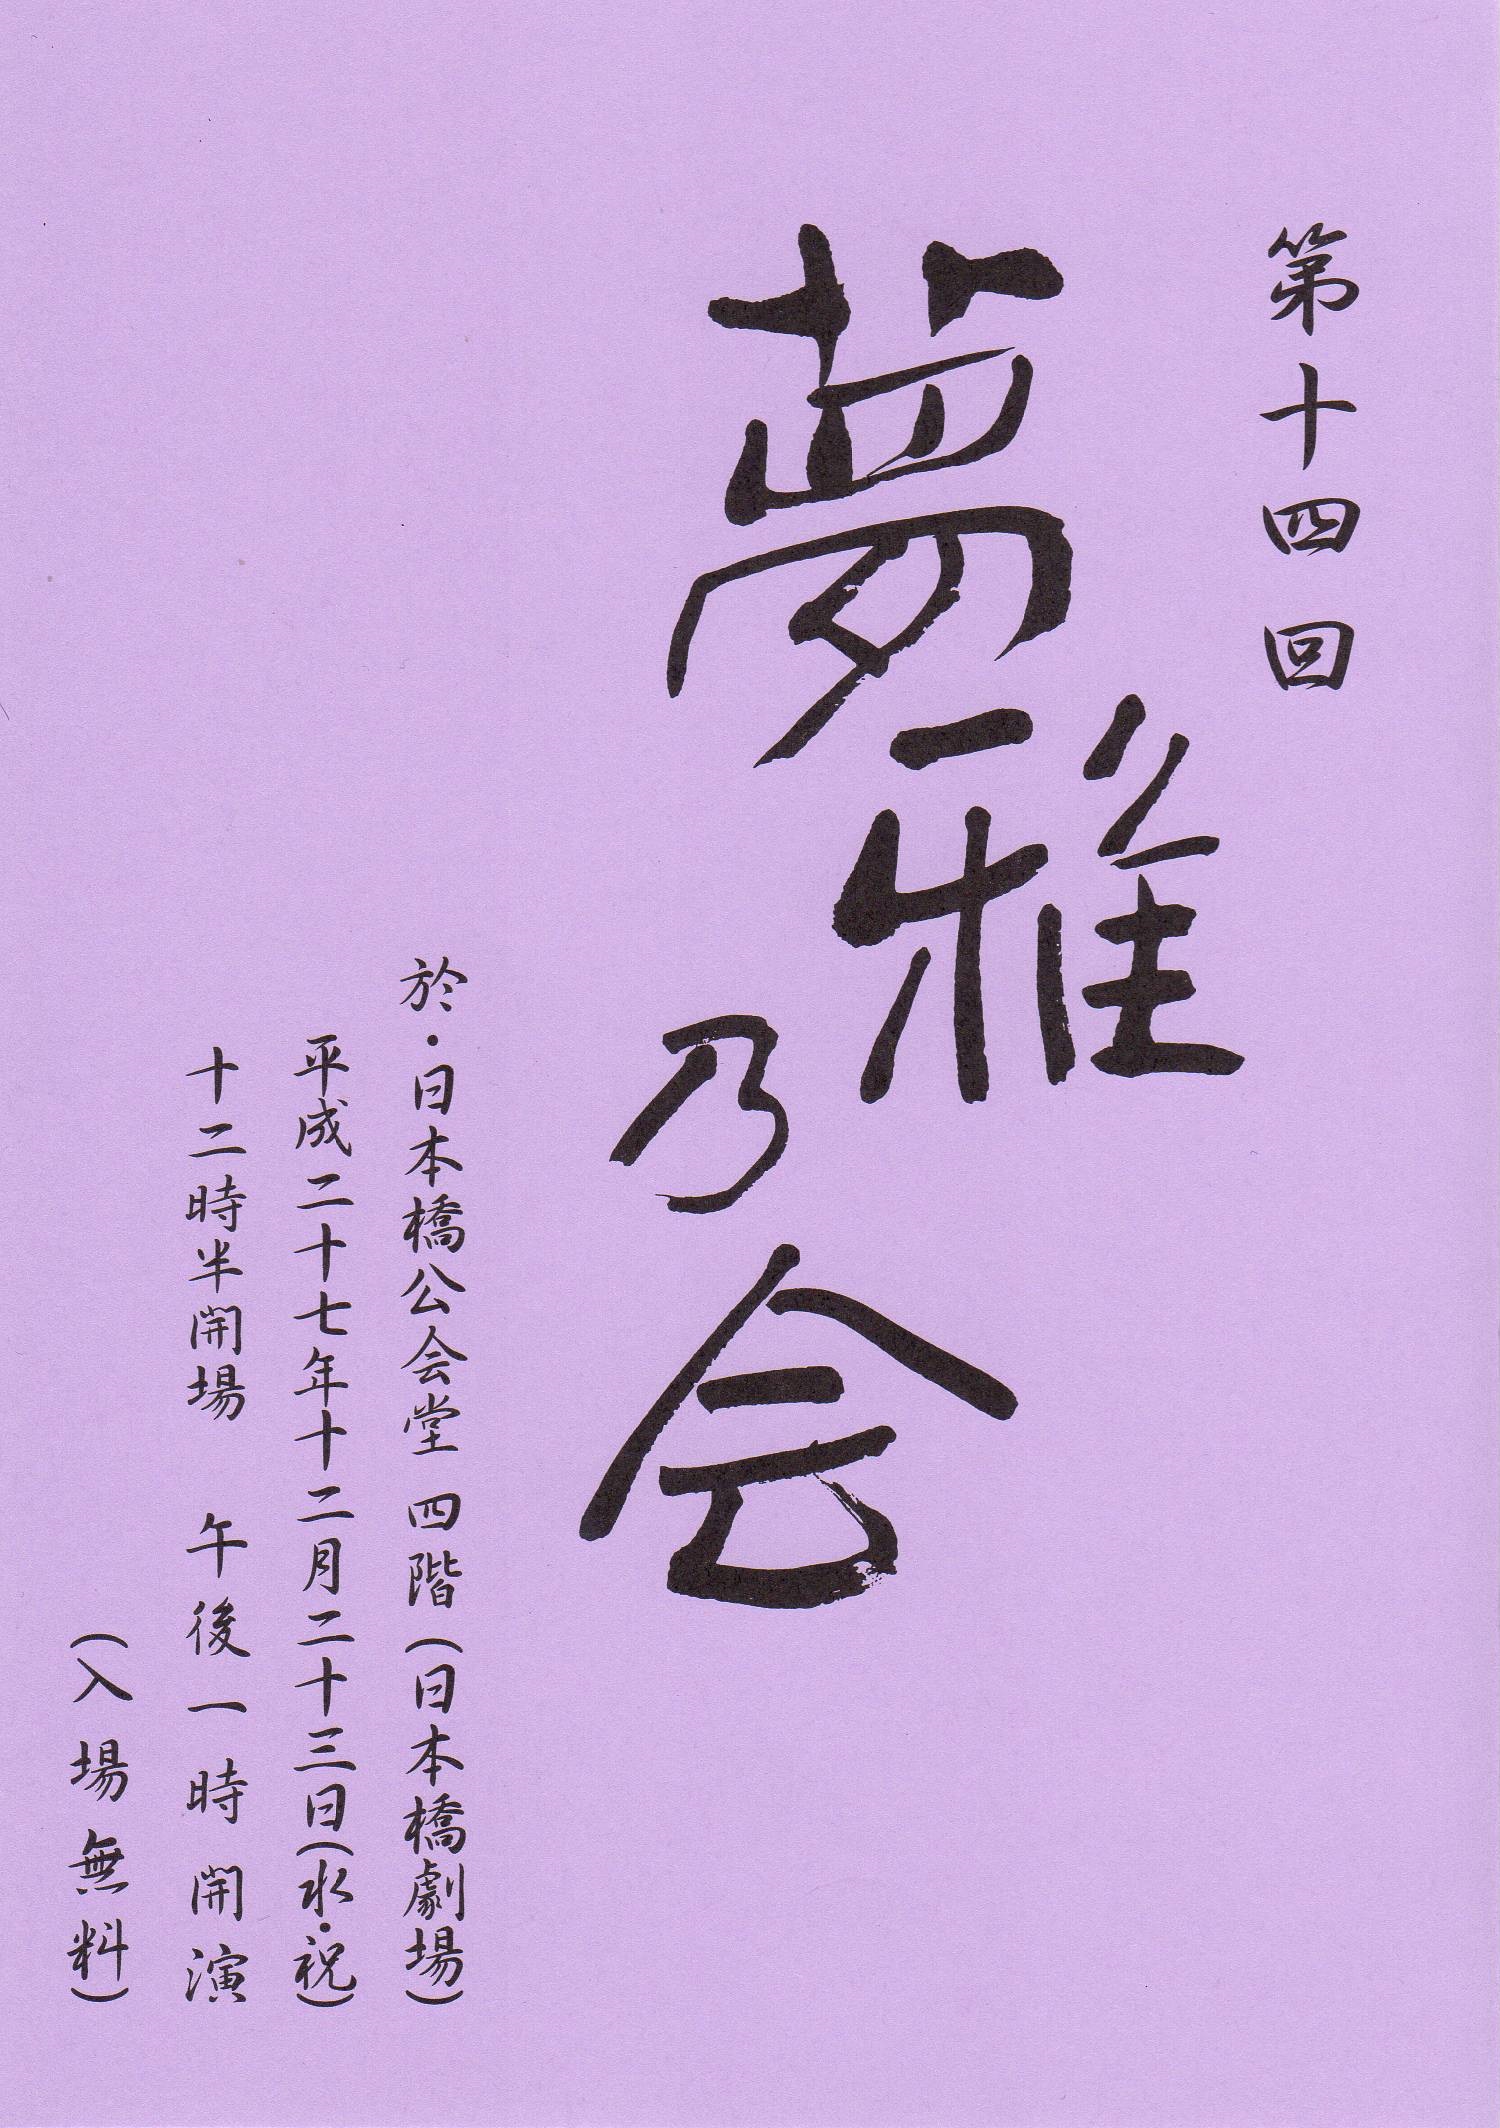 第十四回
夢雅乃会
於・日本橋公会堂 四階（日本橋劇場）
平成二十七年十二月二十三日（水・祝）
十二時半開場 午後一時開演
（入場無料）